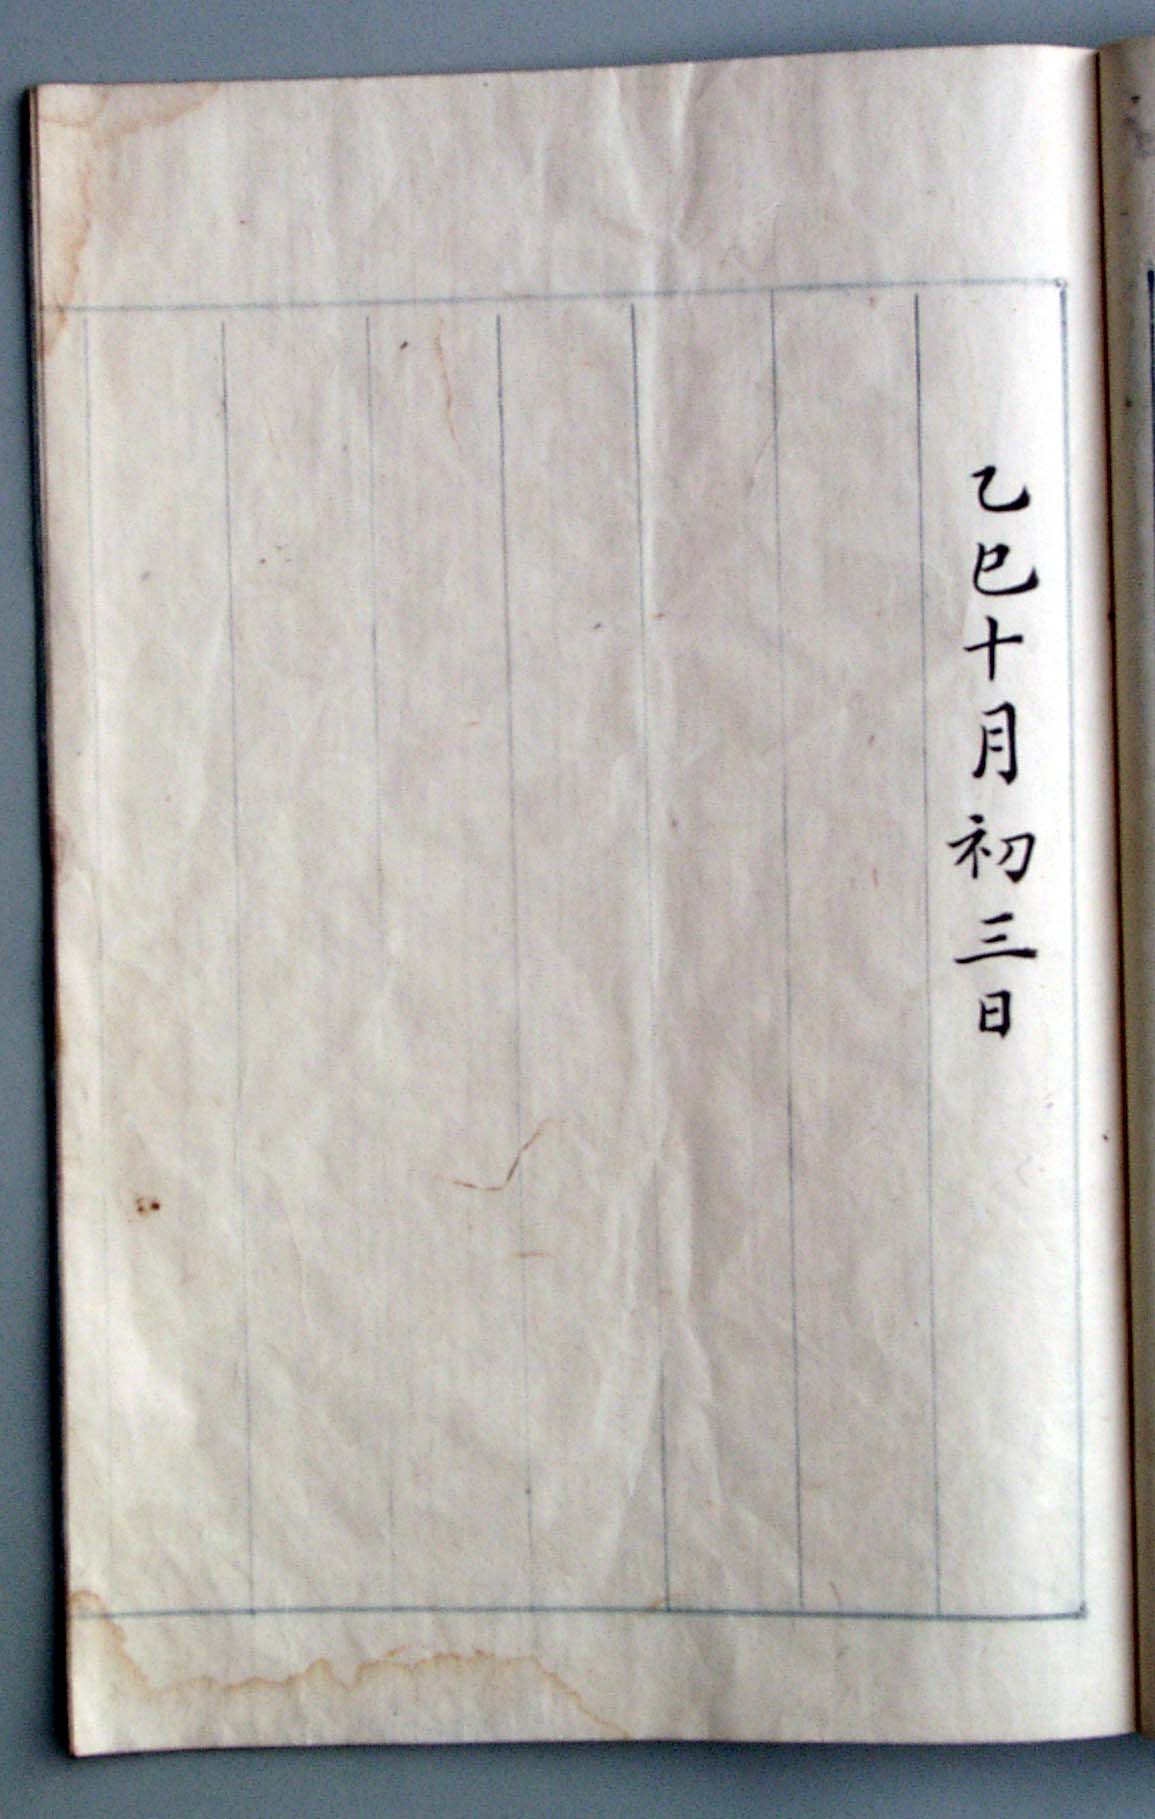 乙巳十月初三日